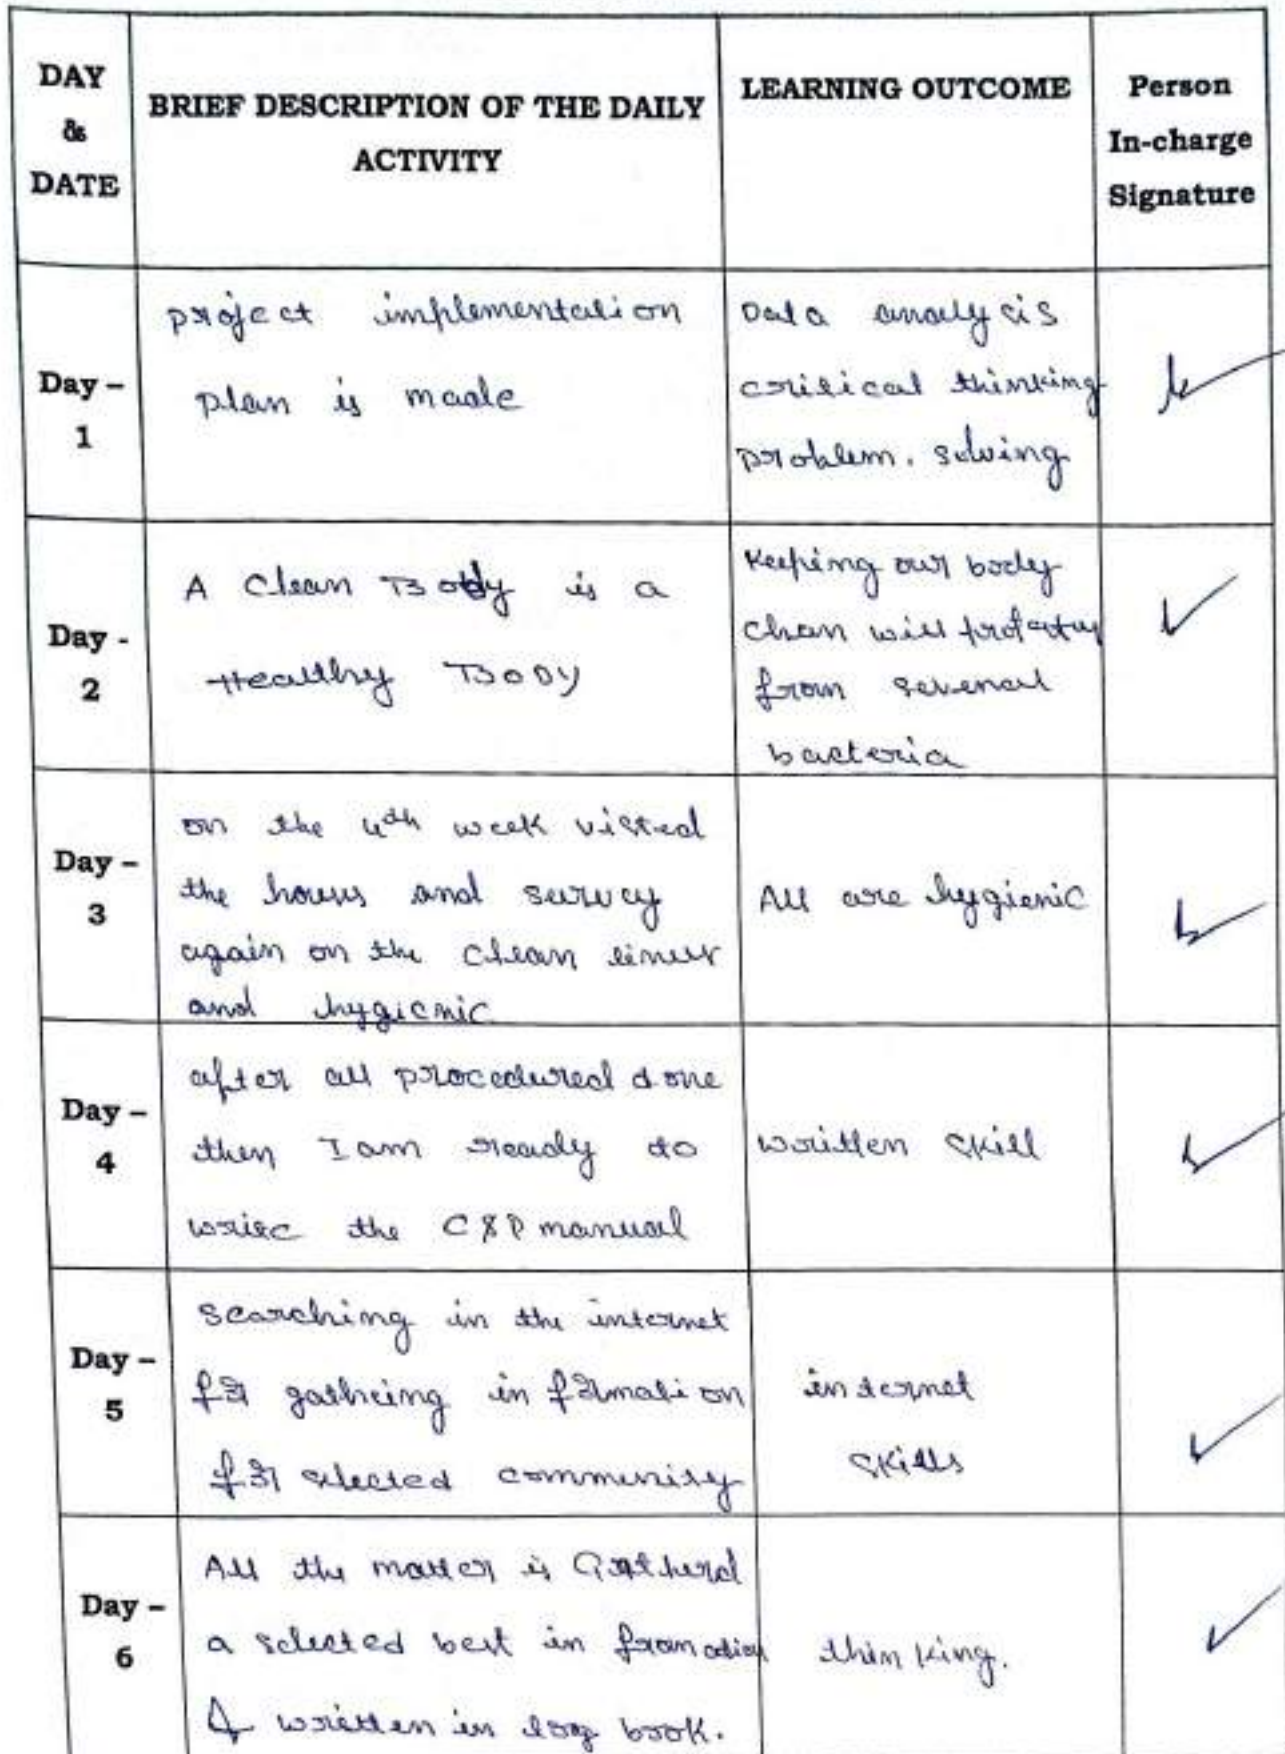 DAY
&
DATE
BRIEF DESCRIPTION OF THE DAILY
ACTIVITY
LEARNING OUTCOME
Person
In-charge
Signature
Day –
1
project implementation
plan is made
Data analysis
critical thinking
problem. solving
Day -
2
A Clean Body is a
Healthy BODY
Keeping our body
clean will
from several
bacteria
Day –
3
on the 4th week visted
the houses and survey
again on the clean liness
and hygienic
All are hygienic
Day –
4
after all procedured done
then I am ready to
write the CSP manual
written skill
Day –
5
searching in the internet
for gatheing information
for selected community
internet
skills
Day –
6
All the matter is Gatherd
a selected best in framation
& written in log book.
thinking.